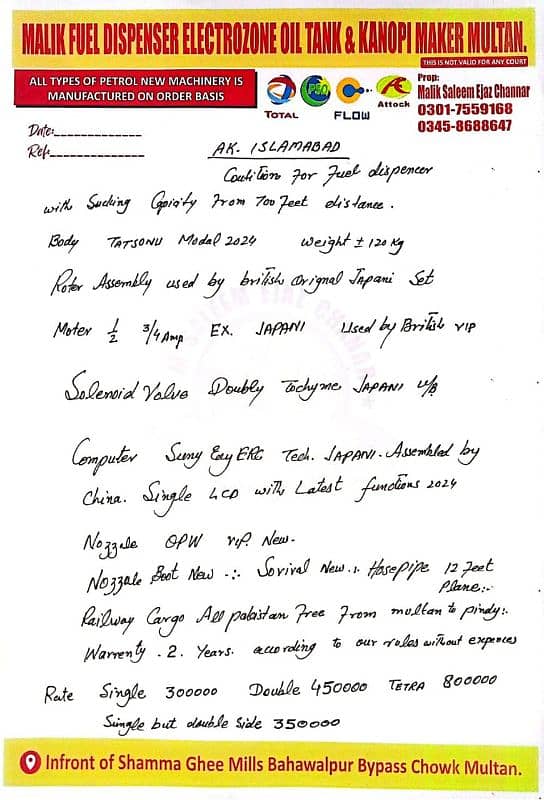 MALIK FUEL DISPENSER ELECTROZONE OIL TANK & KANOPI MAKER MULTAN.
THIS IS NOT VALID FOR ANY COURT
ALL TYPES OF PETROL NEW MACHINERY IS
MANUFACTURED ON ORDER BASIS
TOTAL
PSO
FLOW
Attock
Prop:
Malik Saleem Ejaz Channar
0301-7559168
0345-8688647
Date:
Ref:
AK. ISLAMABAD
Coutition For Fuel dispencer
with Sucking Cpicity From 700 Feet distance.
Body TATSONU Modal 2024 weight ± 120 Kg
Roter Assembly used by british Orignal Japani Set
Moter 1/2 3/4 Amp EX. JAPANI Used by British VIP
Solenoid Valve Doubly JAPANI
SALEEM EJAZ CHANNAR
Computer Tech. JAPANI. Assembled by
China. Single LCD with Latest functions 2024
Nozzele OPW VIP. New.
Nozzele Boot New .:. Sovival New.:. Hose pipe 12 Feet
Plane:.
Railway Cargo All pakistan Free From multan to pindy:.
Warrenty . 2. Years. according to our rules without expences
Rate Single 300000 Double 450000 TETRA 800000
Single but double side 350000
Infront of Shamma Ghee Mills Bahawalpur Bypass Chowk Multan.